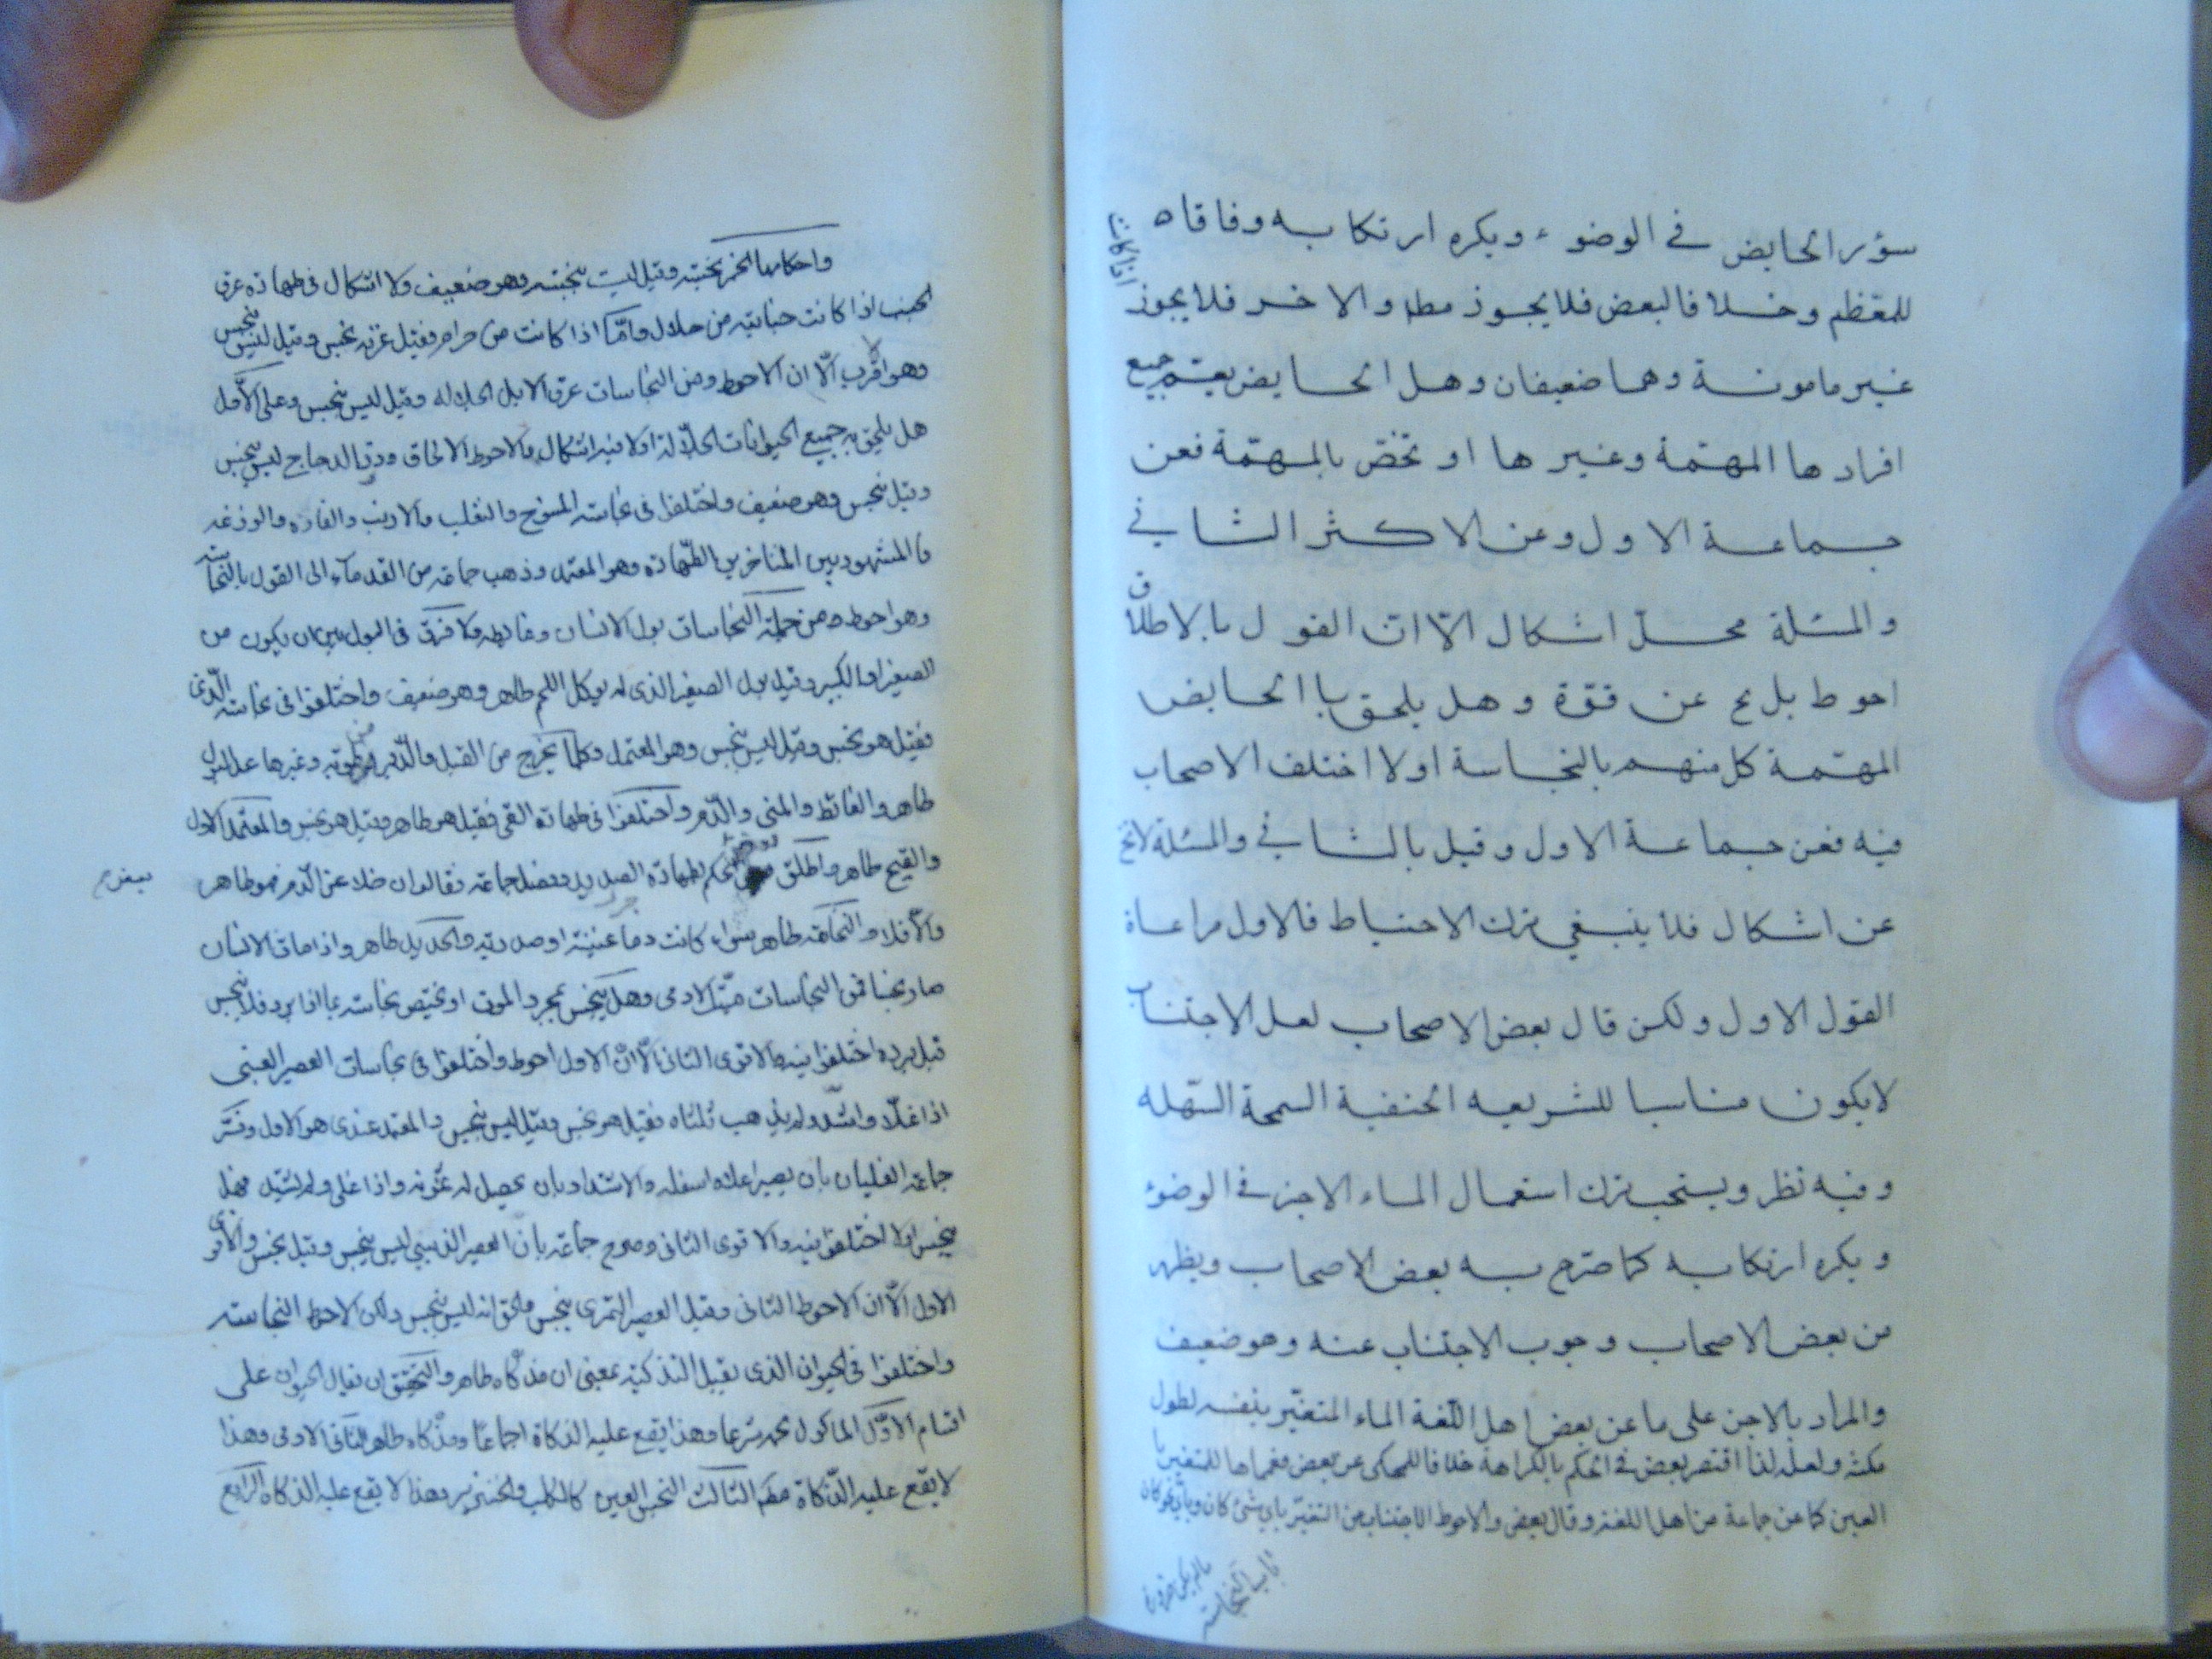 سؤر الحايض في الوضوء ويكره ارتكابه وفاقا
للمعظم وخلافا لبعض فلا يجوز مطلقا والاخر فلا يجوز اذا كانت
غير مامونة وهما ضعيفان وهل الحايض يعم جميع
افرادها المهتمة وغيرها او تختص بالمهتمة فعن
جماعة الاول وعن الاكثر الثاني
والمسئلة محل اشكال الا ان القول بالاطلاق
احوط بل لا يخ عن قوة وهل يلحق بالحايض
المهتمة كل متهم بالنجاسة اولا اختلف الاصحاب
فيه فعن جماعة الاول وقيل بالثاني والمسئلة لا تخ
عن اشكال فلا ينبغي ترك الاحتياط فالاول مراعاة
القول الاول ولكن قال بعض الاصحاب لعل الاجتناب
لا يكون مناسبا للشريعه الحنفية السمحة السهله
وفيه نظر ويستحب ترك استعمال الماء الاجن في الوضوء
ويكره ارتكابه كما صرح به بعض الاصحاب ويظهر
من بعض الاصحاب وجوب الاجتناب عنه وهو ضعيف
والمراد بالاجن على ما عن بعض اهل اللغة الماء المتغير بنفسه لطول
مكثه ولعله لذا اقتصر بعض في الحكم بالكراهة خلافا للمحكي عن بعض
العين كما عن جماعة من اهل اللغة وقال بعض والاحوط الاجتناب من التغير باي شئ كان
وقيل ليست بنجسة وهو ضعيف ولا اشكال في طهارة عرق
الجنب اذا كانت جنابته من حلال واما اذا كانت من حرام فقيل عرقه نجس وقيل ليس بنجس
وهو اقرب الا ان الاحوط ومن النجاسات عرق الابل الجلالة وقيل ليس بنجس وعلى الاول
هل يلحق به جميع الحيوانات الجلالة اولا فيه اشكال والاحوط الالحاق وذرق الدجاج ليس بنجس
وقيل نجس وهو ضعيف واختلفوا في نجاسة المسوخ والثعلب والارنب والفارة والوزغة
فالمشهور بين المتاخرين الطهارة وهو المعتمد وذهب جماعة من القدماء الى القول بالنجاسة
وهو احوط ومن جملة النجاسات بول الانسان وغايطه ولا فرق في البول بين ان يكون من
الصغير او الكبير وقيل بول الصغير الذي لم يوكل اللحم طاهر وهو ضعيف واختلفوا في نجاسة
فقيل هو نجس وقيل ليس بنجس وهو المعتمد وكلما يخرج من القبل والدبر وغيرها عدا البول
طاهر والغائط والمني والدم واختلفوا في طهارة القي فقيل هو طاهر وقيل هو نجس والمعتمد الاول
والقيح طاهر واطلق بعض الحكم بطهارة الصديد وفصل جماعة فقالوا ان خلا عن الدم فهو طاهر
طاهر سواء كانت او والحديد طاهر واذا مات الانسان
صار نجسا فمن النجاسات ميت الادمي وهل ينجس بمجرد الموت او يختص نجاسته بما اذا برد فلا ينجس
قبل برده اختلفوا فيه والاقوى الثاني الا ان الاول احوط واختلفوا في نجاسات العصير العنبي
اذا غلا واشتد ولم يذهب ثلثاه فقيل هو نجس وقيل ليس بنجس والمعتمد عندي هو الاول وفسر
جماعة الغليان بان يصير اعلاه اسفله والاشتداد بان يحصل له ثخونه واذا غلى ولم يشتد فهل
ينجس اولا اختلفوا فيه والاقوى الثاني وصرح جماعة بان العصير الزبيبي ليس بنجس وقيل نجس والاقوى
الاول الا ان الاحوط الثاني وقيل العصير التمري ينجس والحق انه ليس بنجس ولكن الاحوط النجاسة
واختلفوا في الحيوان الذي يقبل التذكية بمعنى ان مذكاه طاهر والتحقيق ان يقال الحيوان على
اقسام الاول الماكول لحمه شرعا وهذا يقع عليه الذكاة اجماعا ومذكاه طاهر الثاني الادمي وهذا
لا يقع عليه الذكاة الثالث النجس العين كالكلب والخنزير وهذا لا يقع عليه الذكاة الرابع